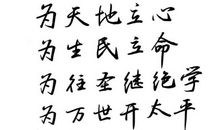 为天地立心
为生民立命
为往圣继绝学
为万世开太平